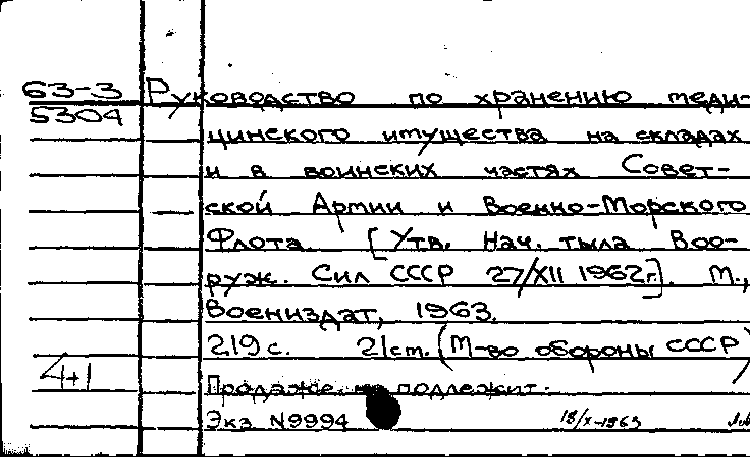 63-3 Руководство по хранению меди-
5304
цинского имущества на складах
и в воинских частях Совет-
ской Армии и Военно-Морского
Флота. [Утв. Нач. тыла Воо-
руж. Сил СССР 27/XII 1962г.]. М.,
Воениздат, 1963.
219 с. 21 см. (М-во обороны СССР)
4+1
Продаже не подлежит.
Экз N9994 18/X-1963